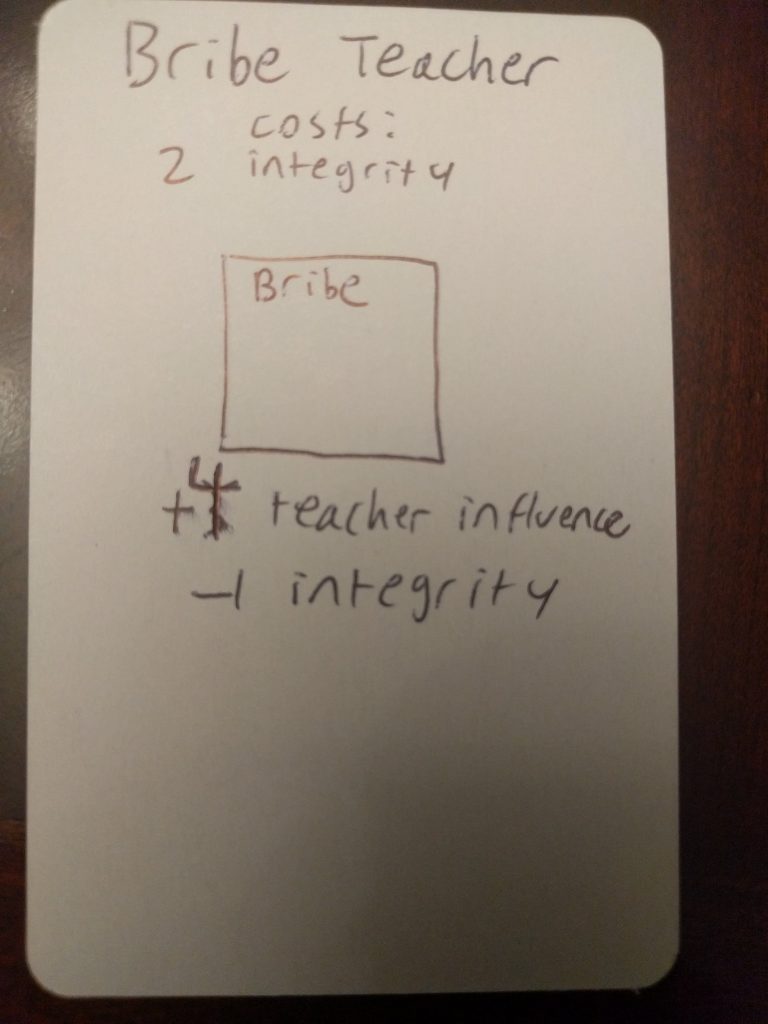 Bribe Teacher
costs:
2 integrity
Bribe
+4 teacher influence
-1 integrity